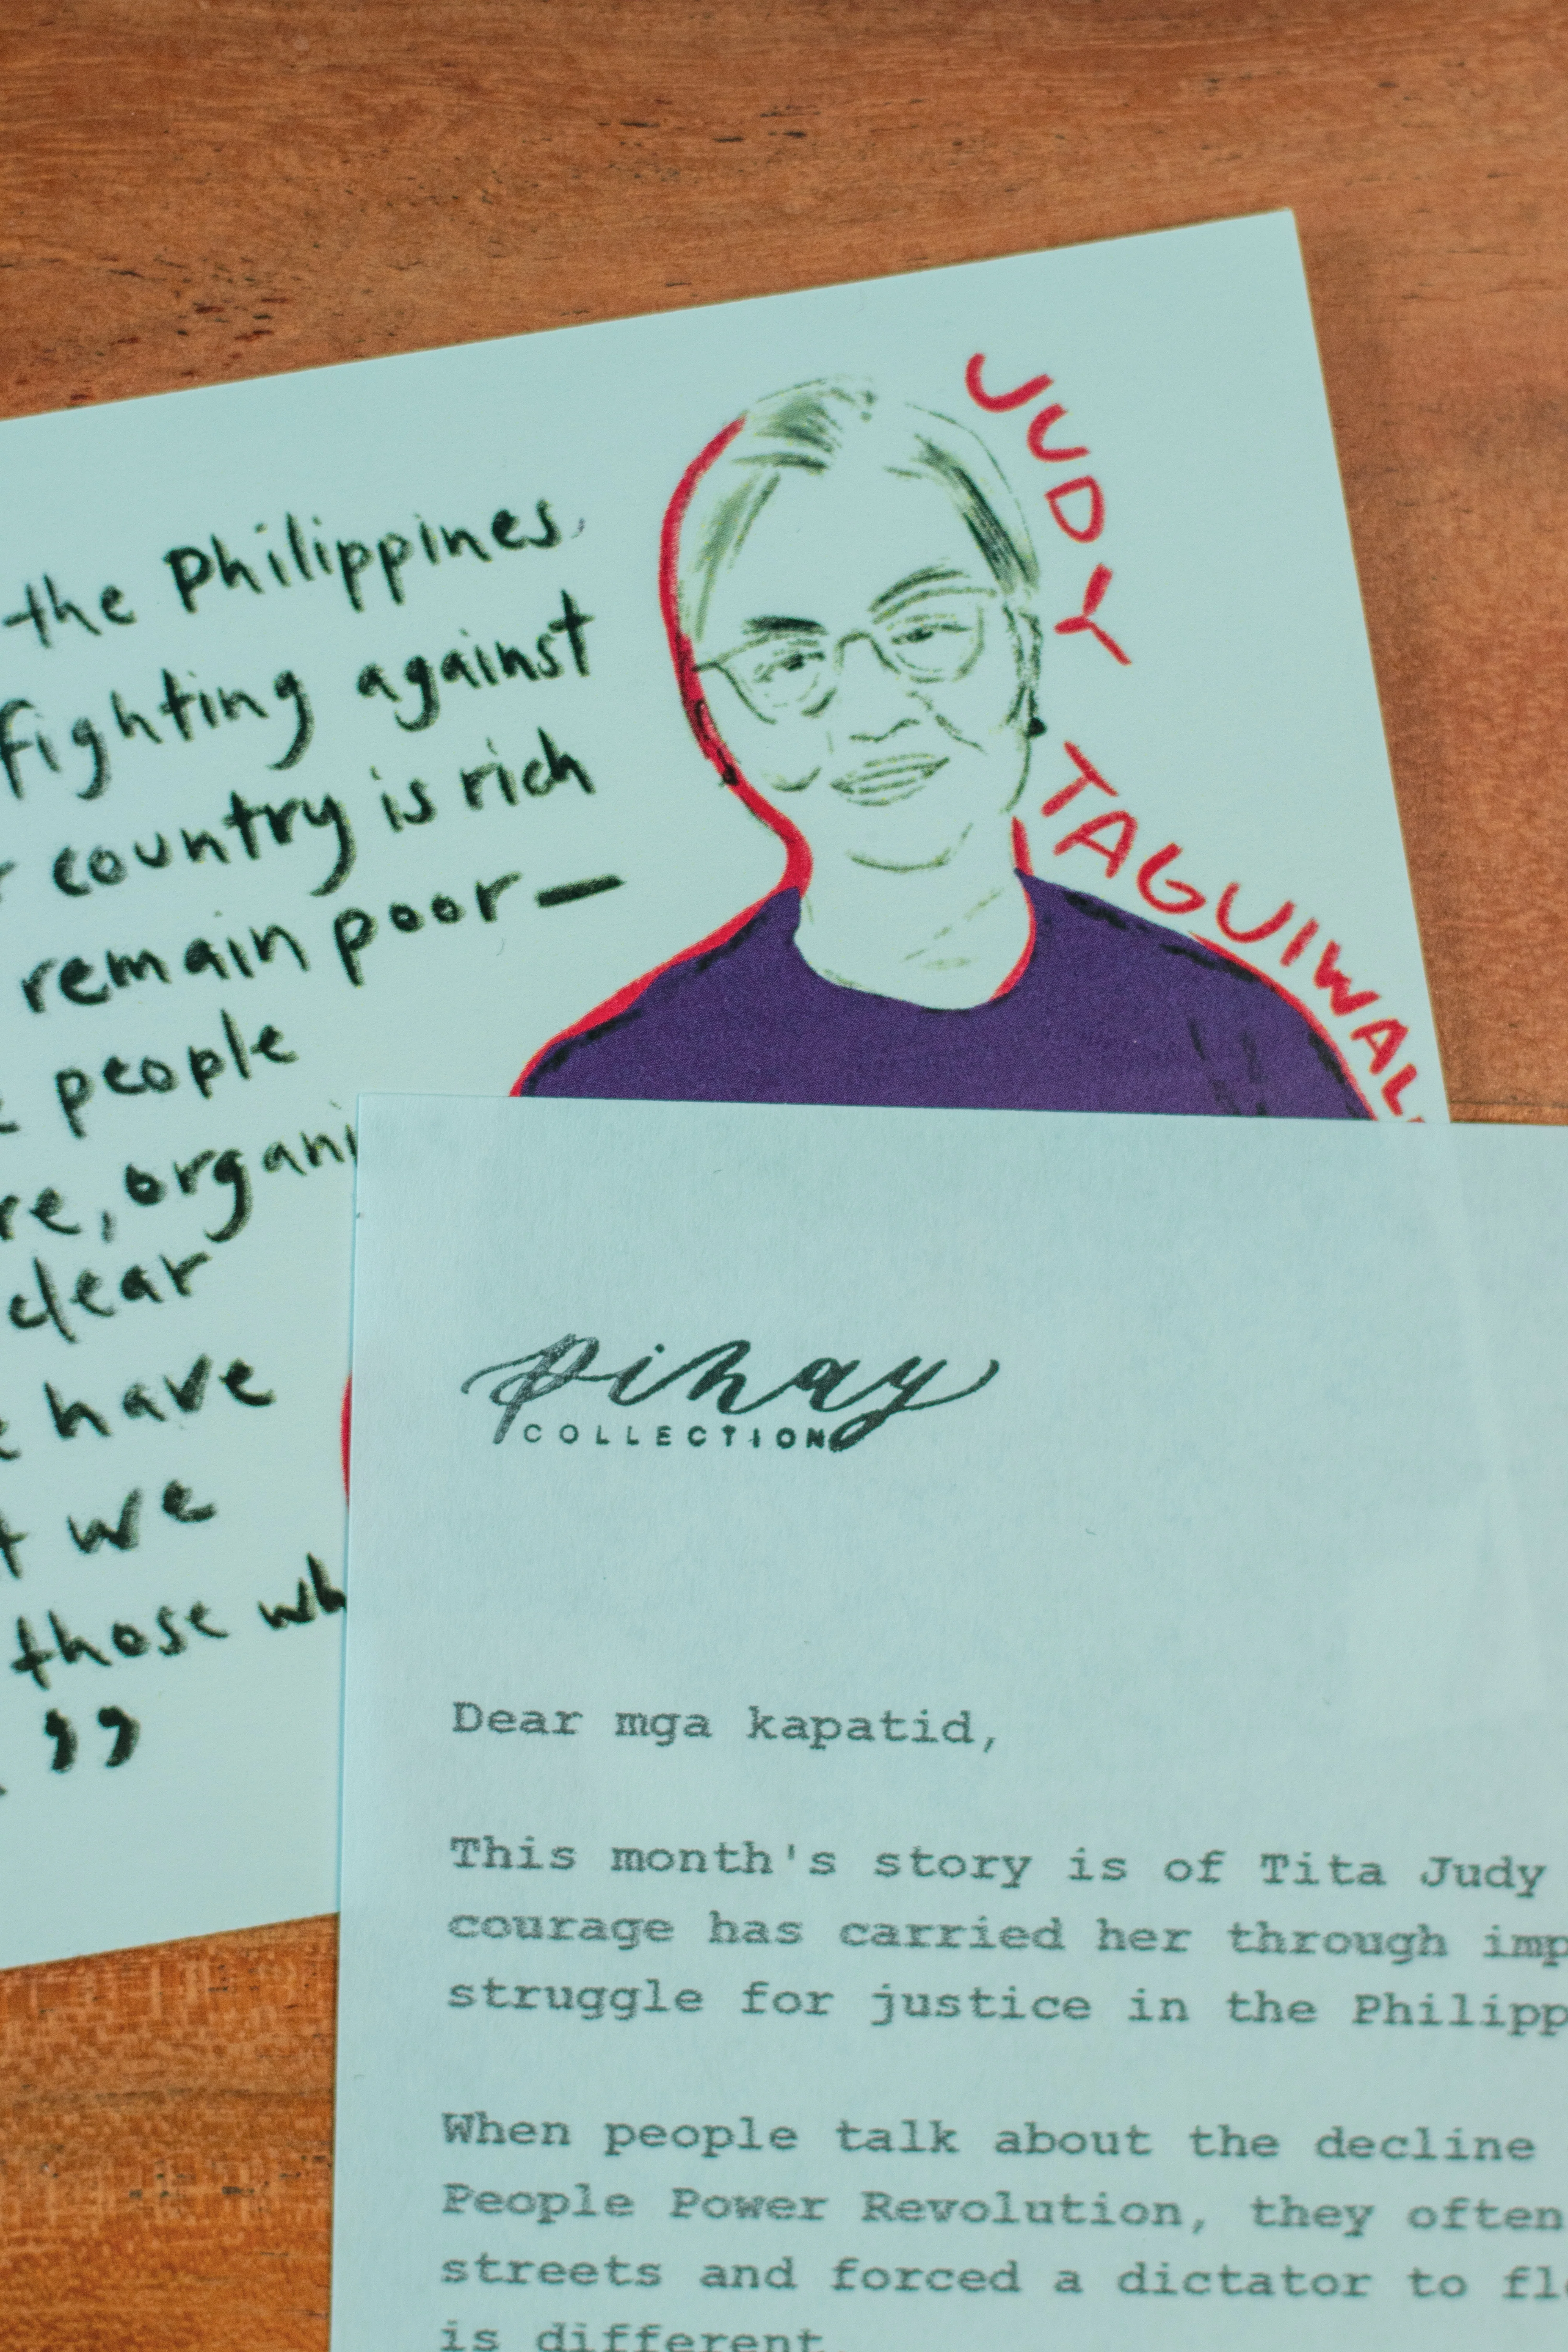 the Philippines,
fighting against
country is rich
remain poor—
people
re, organi
clear
have
we
those wh
”
JUDY
TAGUIWAL
pinay
COLLECTION
Dear mga kapatid,
This month's story is of Tita Judy
courage has carried her through imp
struggle for justice in the Philipp
When people talk about the decline
People Power Revolution, they often
streets and forced a dictator to fl
is different.